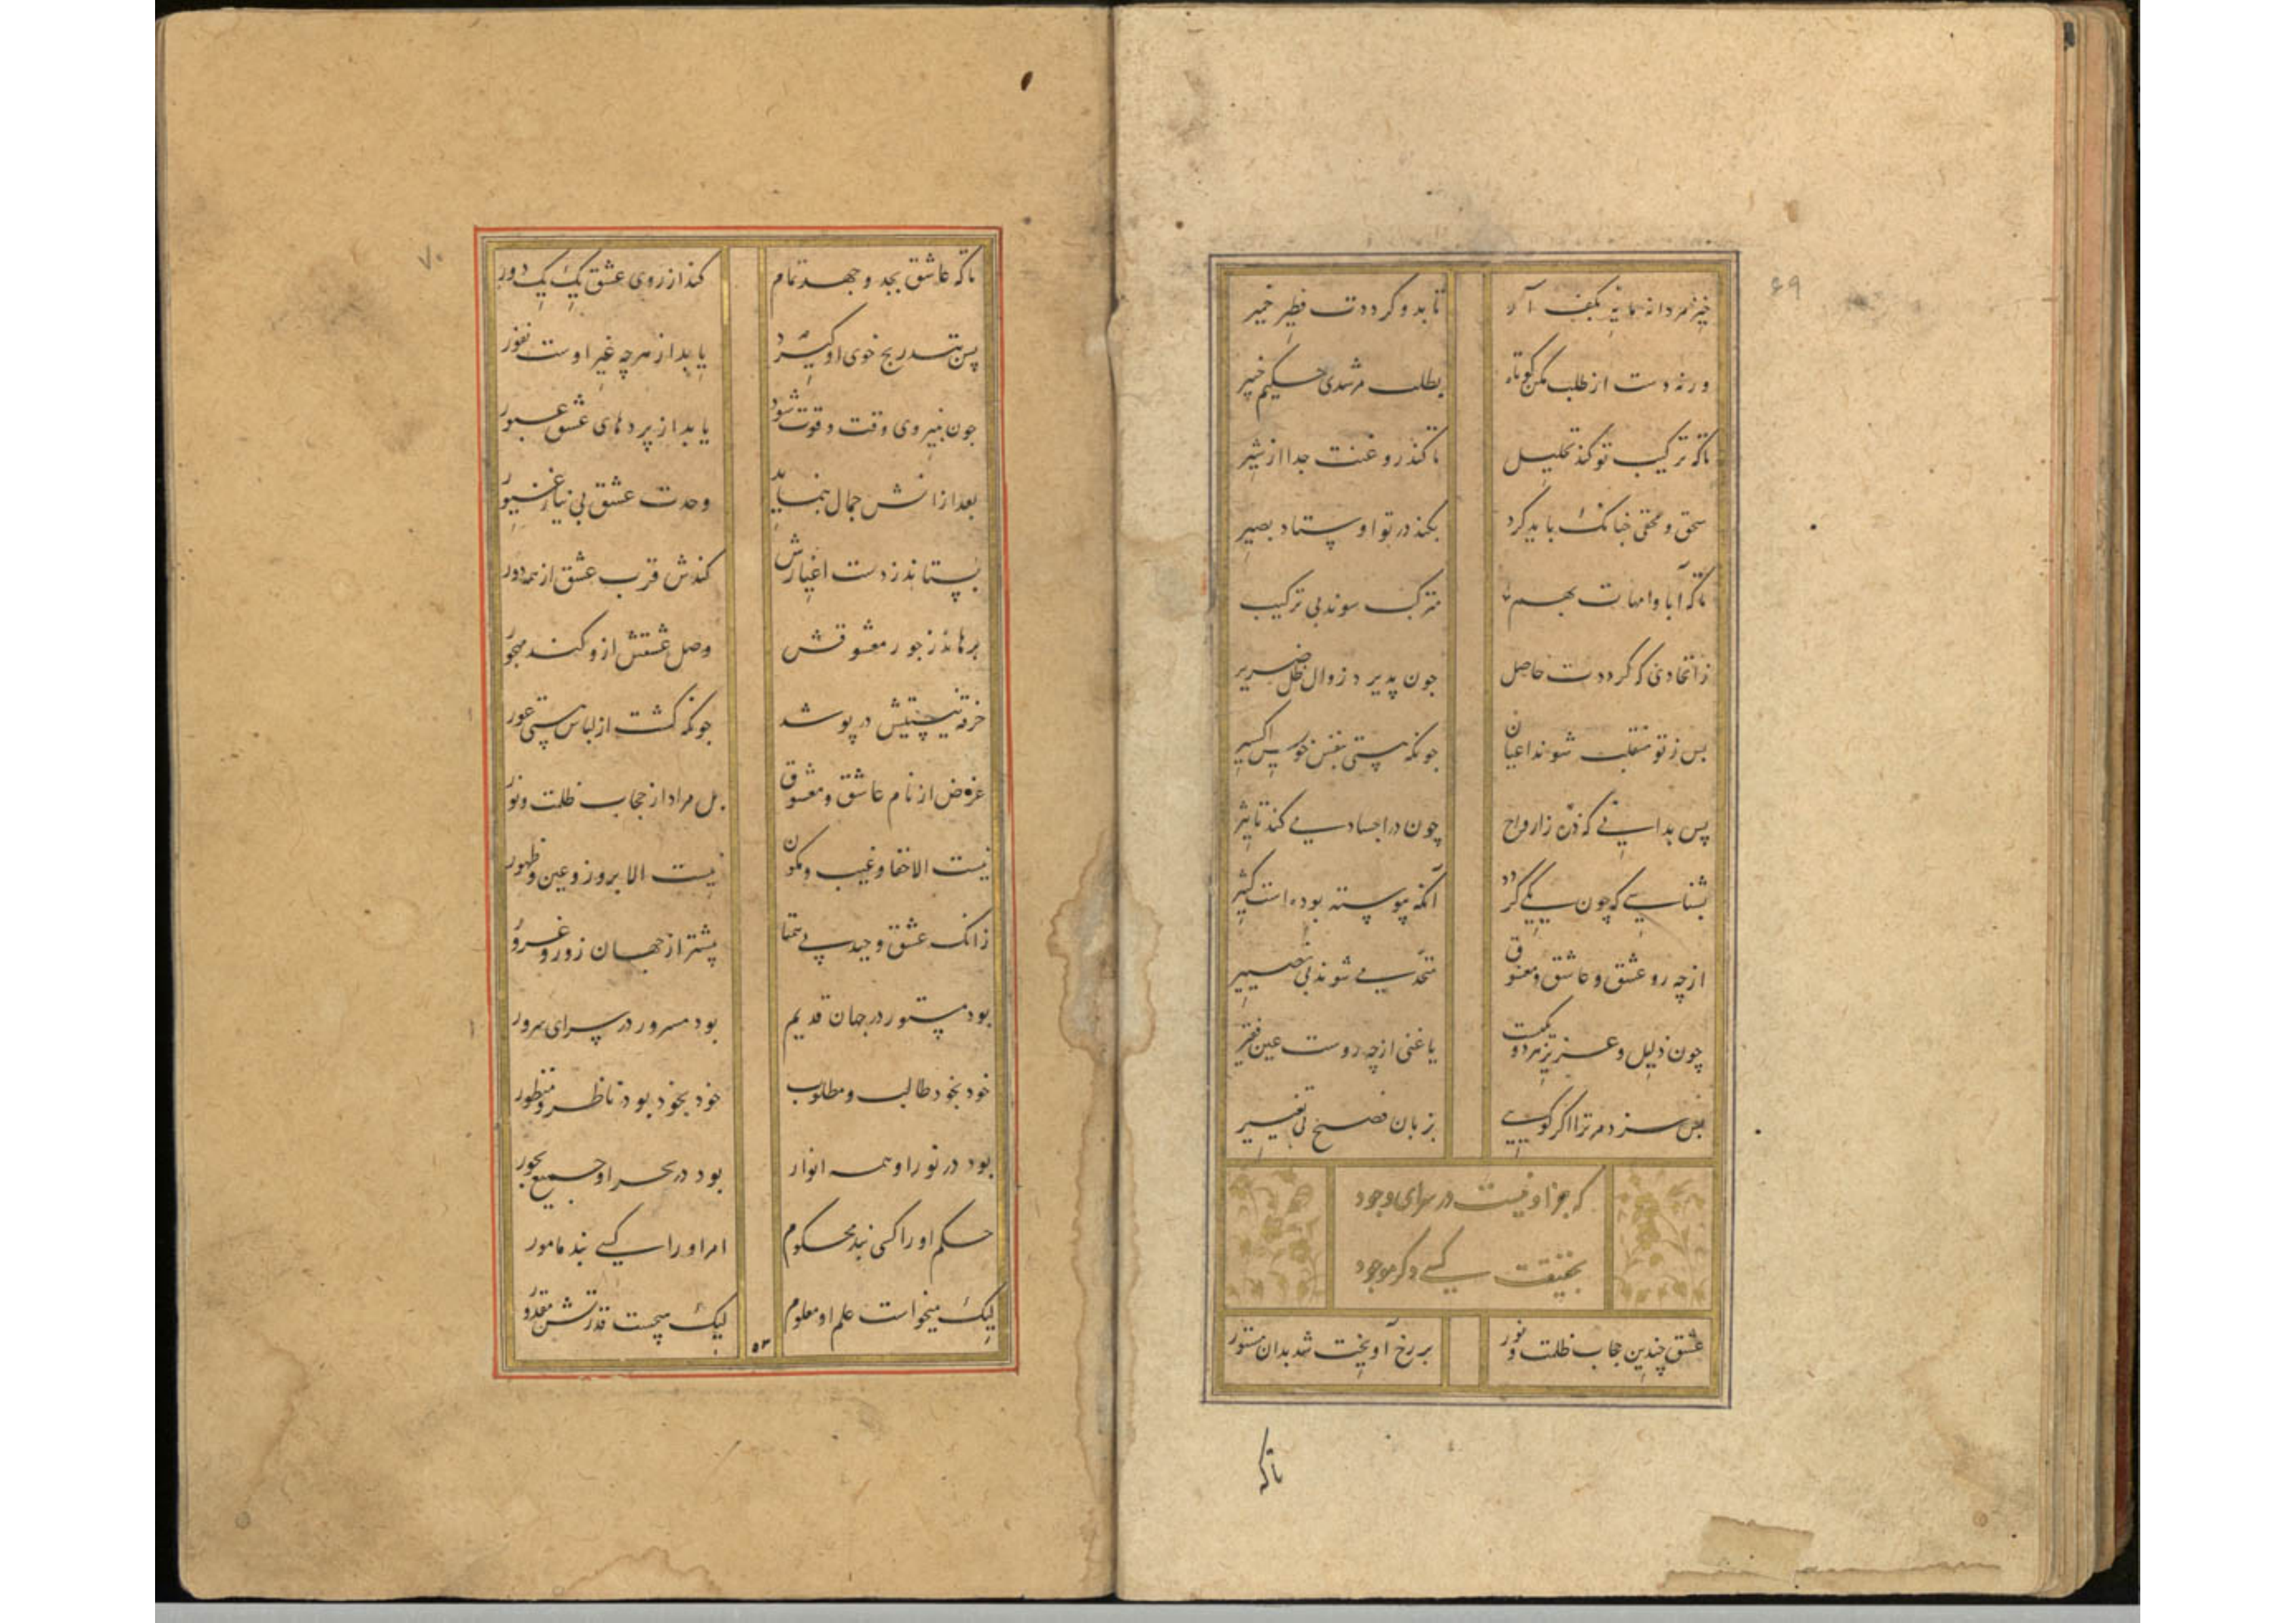 ۶۹
خیز مردانه مایهٔ بکف آر تا بدو گرددت فطیر خمیر
ورنه دست از طلب مکن کوتاه بطلب مرشدی حکیم خبیر
تاکه ترکیب تو کند تحلیل تا کند روغنت جدا از شیر
سحق و محقی چنانک باید کرد بکند در تو اوستاد بصیر
تاکه آبا و امهات بهم متزکب سوند بی ترکیب
زاتحادی که گرددت حاصل جون پذیرد زوال ظل ضریر
بس ز تو منقلب شوند اعیان جونکه هستی بنفس خویش اکسیر
پس بدانی که ذره ز ارواح چون در اجساد می کند تاثیر
بشناسی که چون یکی گردد آنکه پیوسته بوده است کثیر
ازچه رو عشق و عاشق و معشوق متحد می شوند بی تخییر
چون ذلیل و عزیز هر دو یکیست یا غنی ازچه روست عین فقیر
پس سزد مر ترا اگر گویی بزبان فصیح بی تفسیر
که جز او نیست در سرای وجود
بحقیقت کسی دگر موجود
عشق چندین حجاب ظلمت و نور بر رخ آویخت شد بدان مستور
تاکه
۷۰
تاکه عاشق بجد و جهد تمام کند از روی عشق یک یک دور
پس بتدریج خوی او گیرد یابد از هرچه غیر اوست نفور
جون بنیروی وقت و قوت شود یابد از پردهای عشق عبور
بعد ازانش جمال بنماید وحدت عشق بی نیاز غیور
بستاند ز دست اغیارش کندش قرب عشق از همه دور
برهاند ز جور معشوقش وصل عشقش ازو کند مهجور
خرقه نیستیش درپوشد جونکه گشت از لباس هستی عور
غرض از نام عاشق و معشوق بل مراد از حجاب ظلمت و نور
نیست الا خفا و غیب و کمون نیست الا بروز و عین و ظهور
زانک عشق وحید بی همتا پیشتر از جهان زور و غرور
بود مستور در جهان قدیم بود مسرور در سرای سرور
خود بخود طالب و مطلوب خود بخود بود ناظر و منظور
بود در نور او همه انوار بود در بحر او جمیع بحور
حکم او را کسی نبد محکوم امر او را کسی نبد مامور
لیک میخواست علم او معلوم لیک میجست قدرتش مقدور
۵۳